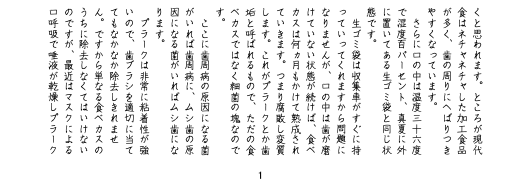 くと思われます。ところが現代
食はネチャネチャした加工食品
が多く、歯の周りにへばりつき
やすくなっています。
さらに口の中は温度三十六度
で湿度百パーセント、真夏に外
に置いてある生ゴミ袋と同じ状
態です。
生ゴミ袋は収集車がすぐに持
っていってくれますから問題に
なりませんが、口の中は歯が磨
けていない状態が続けば、食べ
カスは何ヵ月もかけて熟成され
ていきます。つまり腐敗し変質
します。これがプラークとか歯
垢と呼ばれるもので、ただの食
べカスではなく細菌の塊なので
す。
ここに歯周病の原因になる菌
がいれば歯周病に、ムシ歯の原
因になる菌がいればムシ歯にな
ります。
プラークは非常に粘着性が強
いので、歯ブラシを適切に当て
てもなかなか除去しきれませ
ん。ですから単なる食べカスの
うちに除去しなくてはいけない
のですが、最近はマスクによる
口呼吸で唾液が乾燥しプラーク
1